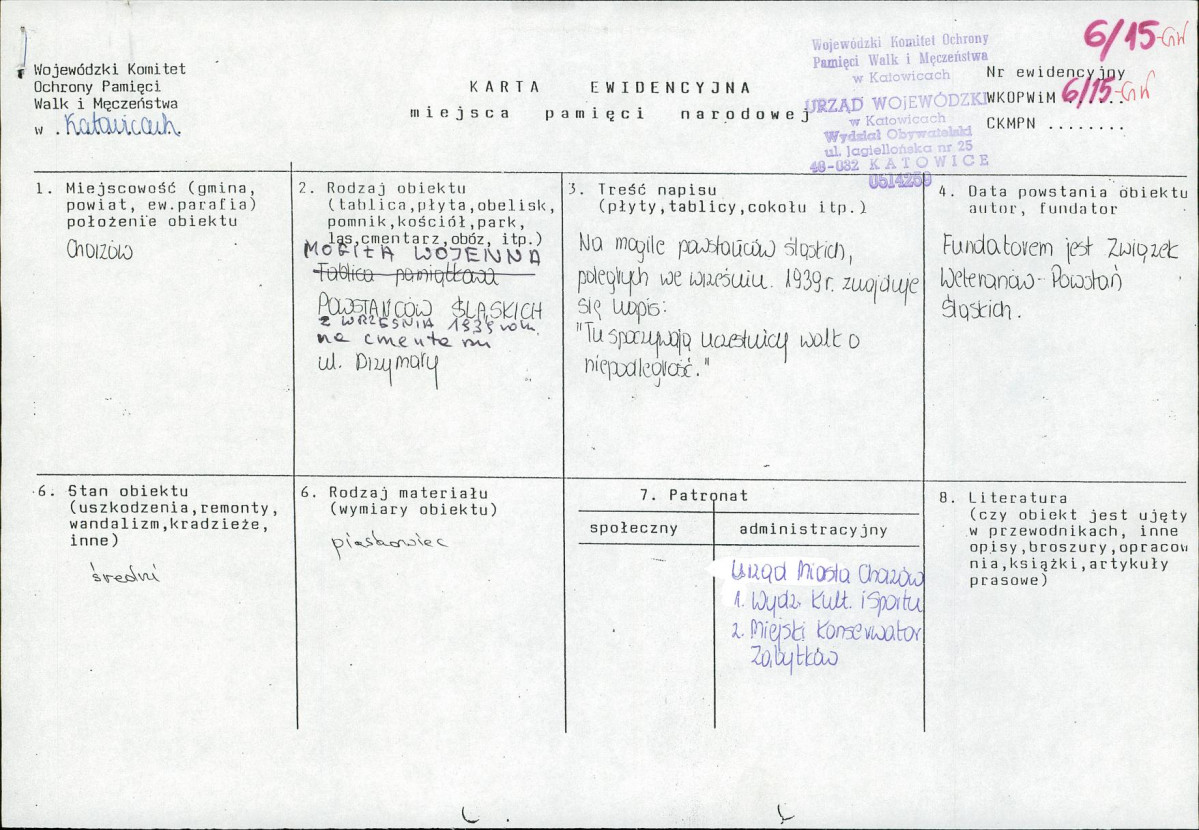 6/15-GW
Wojewódzki Komitet
Ochrony Pamięci
Walk i Męczeństwa
w . Katowicach
KARTA EWIDENCYJNA
miejsca pamięci narodowej
Wojewódzki Komitet Ochrony
Pamięci Walk i Męczeństwa
w Katowicach
URZĄD WOJEWÓDZKI
w Katowicach
Wydział Obywatelski
ul. Jagiellońska nr 25
48-032 KATOWICE
0514259
Nr ewidencyjny
WKOPWiM 6/15-GW
CKMPN ........
1. Miejscowość (gmina,
powiat, ew.parafia)
położenie obiektu
Chorzów
2. Rodzaj obiektu
(tablica,płyta,obelisk,
pomnik,kościół,park,
las,cmentarz,obóz, itp.)
MOGIŁA WOJENNA
Tablica pamiątkowa
POWSTAŃCÓW ŚLĄSKICH
Z WRZEŚNIA 1939 roku
na cmentarzu
ul. Drzymały
3. Treść napisu
(płyty,tablicy,cokołu itp.)
Na mogile powstańców śląskich,
poległych we wrześniu. 1939 r. znajduje
się napis:
"Tu spoczywają uczestnicy walk o
niepodległość."
4. Data powstania obiektu
autor, fundator
Fundatorem jest Związek
Weteranów-Powstań
Śląskich.
6. Stan obiektu
(uszkodzenia,remonty,
wandalizm,kradzieże,
inne)
średni
6. Rodzaj materiału
(wymiary obiektu)
piaskowiec
7. Patronat
społeczny
administracyjny
Urząd Miasta Chorzów
1. Wydz. Kult. i Sportu
2. Miejski Konserwator
Zabytków
8. Literatura
(czy obiekt jest ujęty
w przewodnikach, inne
opisy,broszury,opracow
nia,książki,artykuły
prasowe)